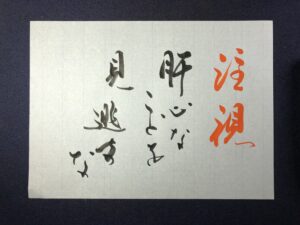 注視
肝心な
ことを
見逃すな